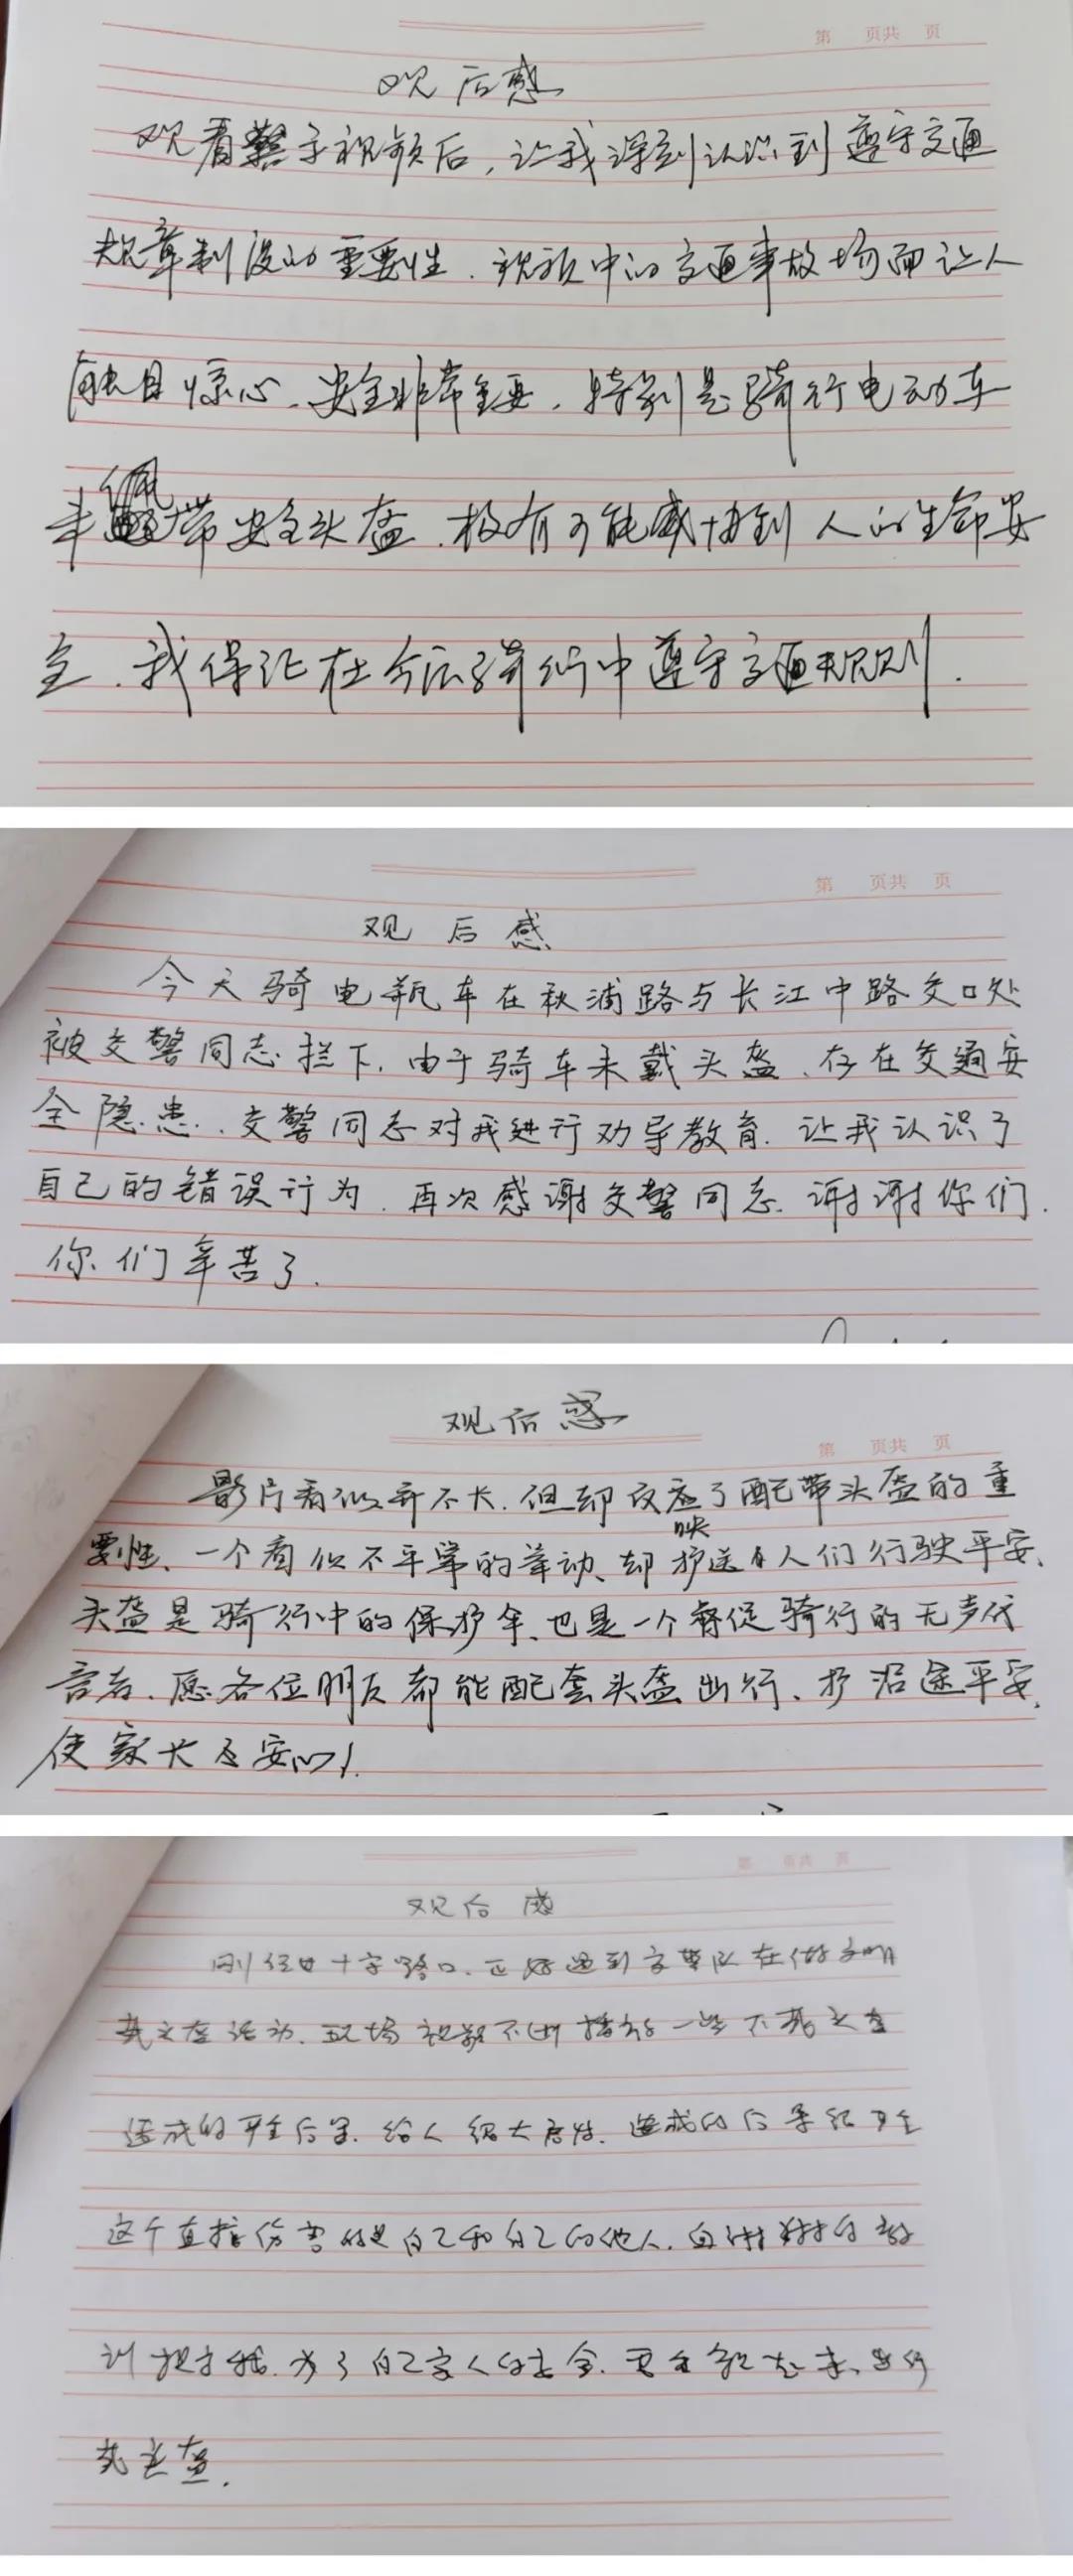 第 页共 页
观后感
观看警示视频后,让我深刻认识到遵守交通
规章制度的重要性.视频中的交通事故场面让人
触目惊心.安全非常重要.特别是骑行电动车
未佩带安全头盔.极有可能威胁到人的生命安
全.我保证在今后骑行中遵守交通规则.
第 页共 页
观后感
今天骑电瓶车在秋浦路与长江中路交口处
被交警同志拦下.由于骑车未戴头盔、存在交通安
全隐患.交警同志对我进行劝导教育.让我认识了
自己的错误行为.再次感谢交警同志.谢谢你们.
你们辛苦了.
观后感
第 页共 页
影片看似并不长.但却反应了配带头盔的重
映
要性、一个看似不平常的举动、却护送着人们行驶平安、
头盔是骑行中的保护伞、也是一个督促骑行的无声代
言者、愿各位朋友都能配套头盔出行、护沿途平安、
使家长及安心!
第 页共 页
观后感
刚经过十字路口.正好遇到交警队在做文明
戴头盔活动.现场视频不断播放一些不戴头盔
造成的严重后果.给人很大. 造成的后果很严重
这个直接伤害的是自己和自己的他人. 的教
训 为了自己家人的安全.
戴头盔.